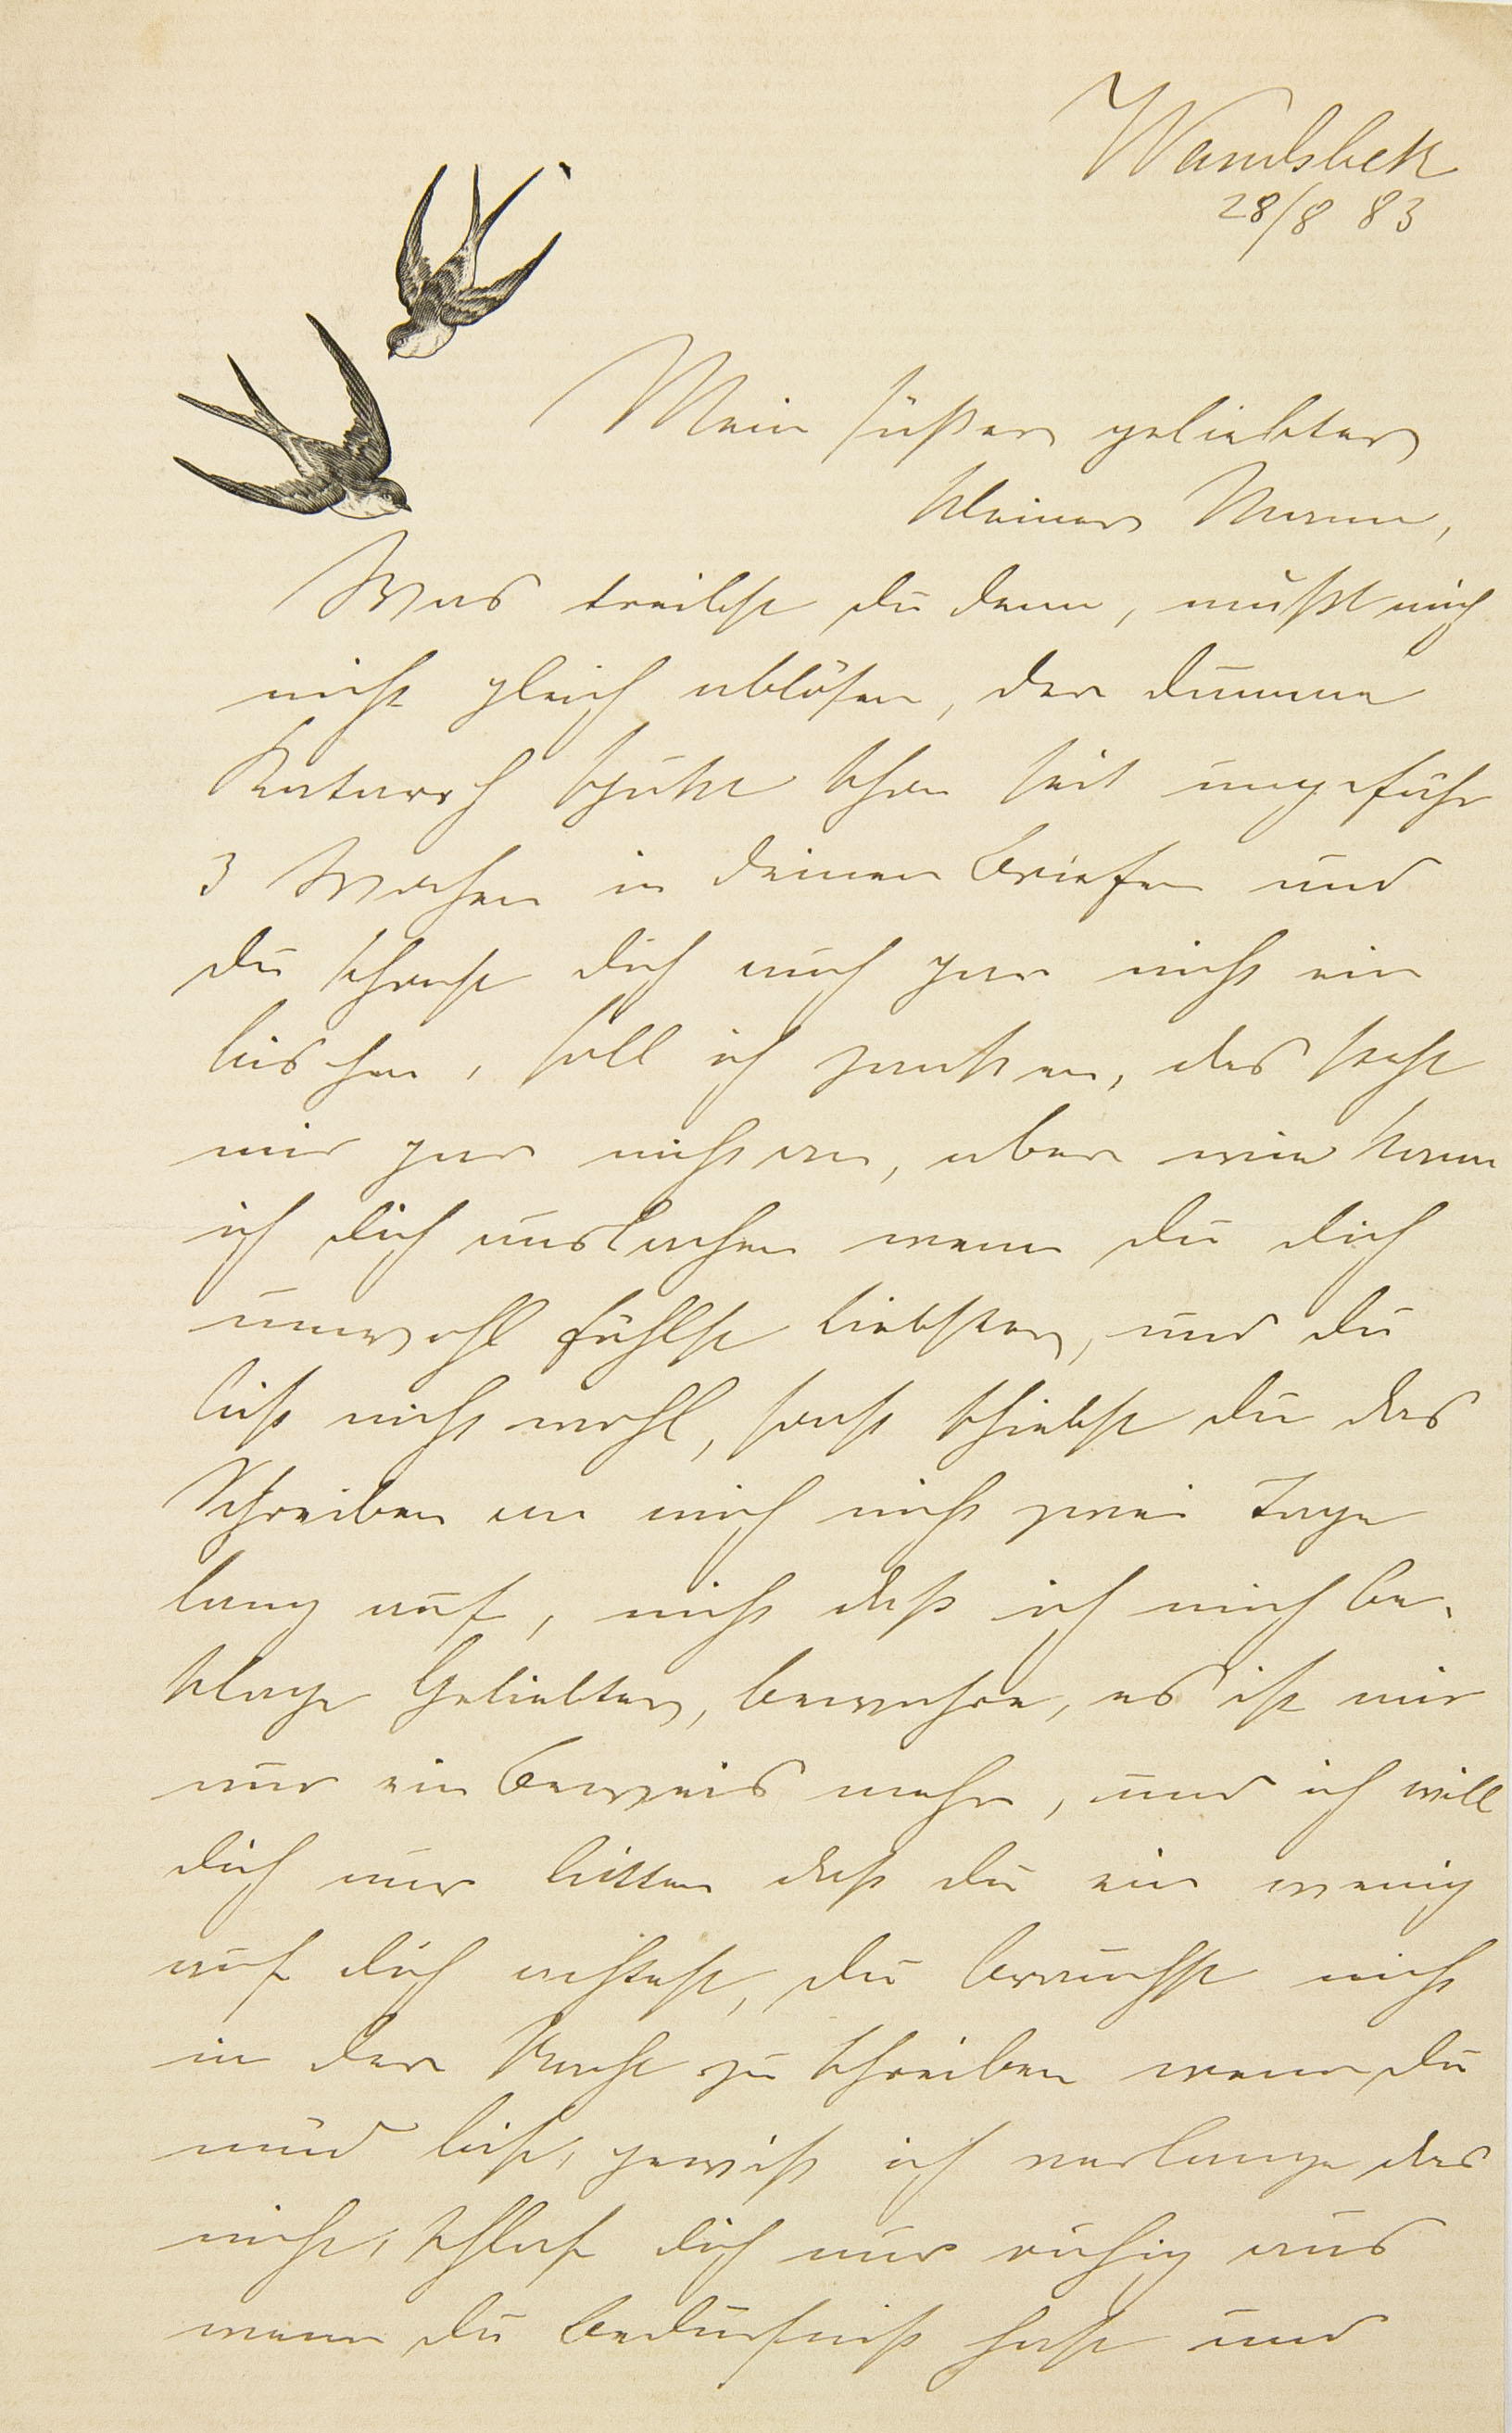 Wandsbek
28/8 83
Mein süßer geliebter
kleiner Mann,
Was treibst du denn, mußt mich
nicht gleich ablösen, der dumme
Katarrh spukt schon seit ungefähr
3 Wochen in deinen Briefen und
du schonst dich auch gar nicht ein
bischen, soll ich zanken, das steht
mir gar nicht an, aber wie kann
ich dich auslachen wenn du dich
unwohl fühlst liebster, und du
bist nicht wohl, sonst schiebst du das
Schreiben an mich nicht zwei Tage
lang auf, nicht daß ich mich be-
klage Geliebter, bewahre, es ist mir
nur ein Beweis mehr, und ich will
dich nur bitten daß du ein wenig
auf dich achtest, du brauchst nicht
in der Nacht zu schreiben wenn du
müd bist, gewiß ich verlange das
nicht, schlaf dich nur ruhig aus
wenn du Bedürfniß hast und